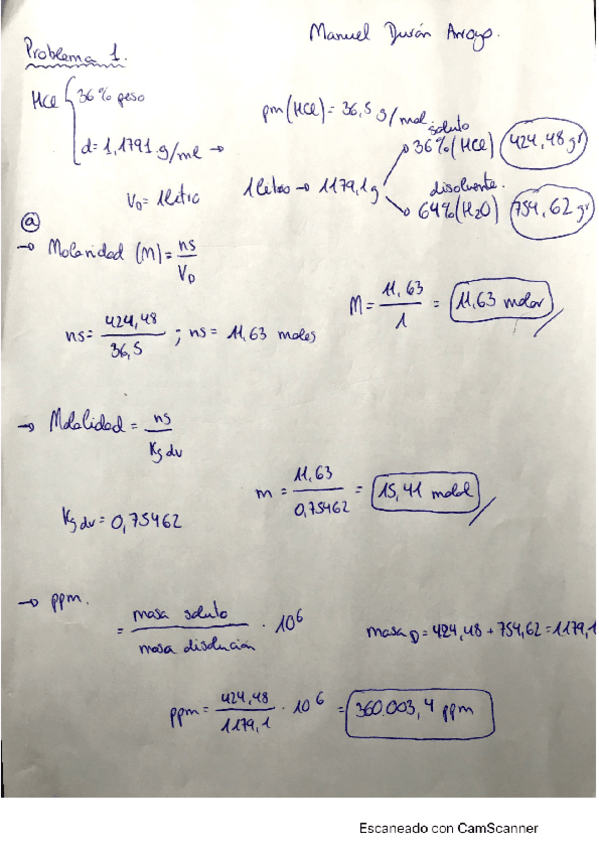 Manuel Durán Arroyo.
Problema 1.
HCl { 36% peso
d = 1,1791 g/ml →
pm (HCl) = 36,5 g/mol
V_D = 1 litro
1 litro → 1179,1 g
soluto
→ 36% (HCl) 424,48 gr
disolvente.
→ 64% (H2O) 754,62 gr
ⓐ
→ Molaridad (M) = ns / V_D
ns = 424,48 / 36,5 ; ns = 11,63 moles
M = 11,63 / 1 = 11,63 molar
→ Molalidad = ns / Kg dv
Kg dv = 0,75462
m = 11,63 / 0,75462 = 15,41 molal
→ ppm.
= masa soluto / masa disolución · 10^6
masa_D = 424,48 + 754,62 = 1179,1
ppm = 424,48 / 1179,1 · 10^6 = 360.003,4 ppm
Escaneado con CamScanner